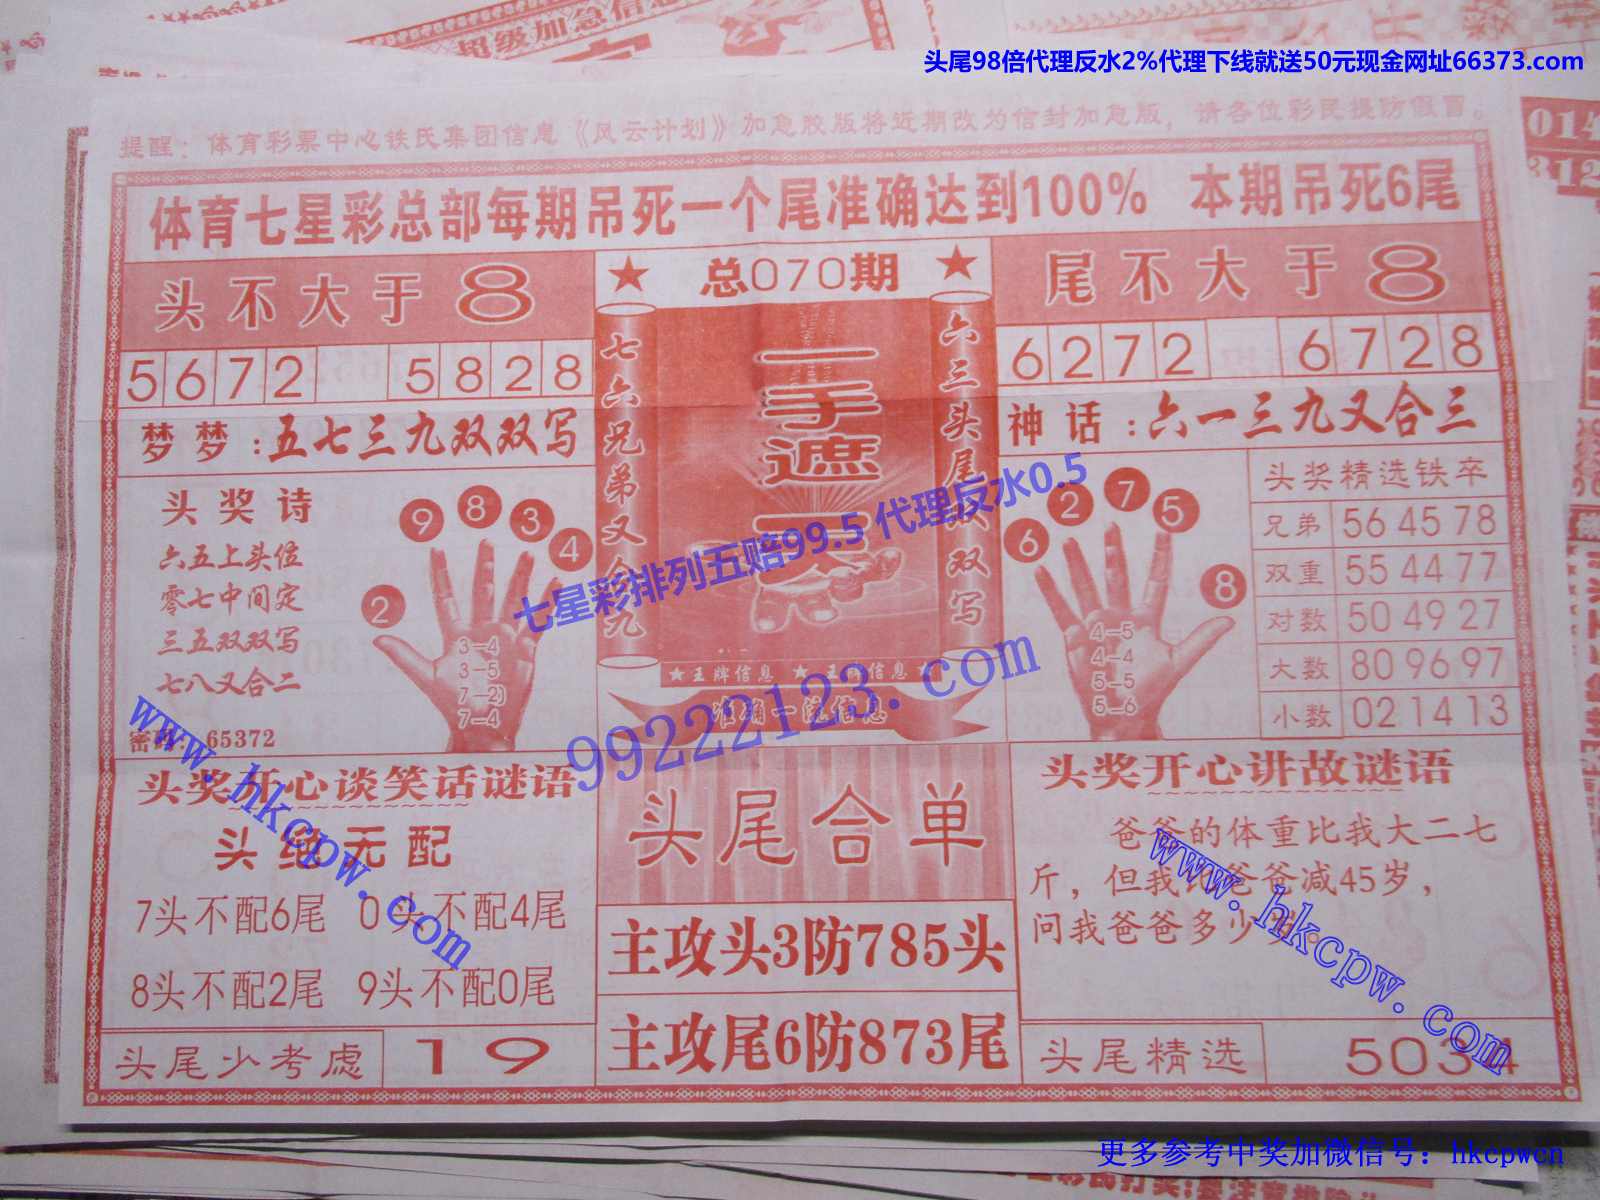 超级加急信息
头尾98倍代理反水2%代理下线就送50元现金网址66373.com
提醒：体育彩票中心铁氏集团信息《风云计划》加急胶版将近期改为信封加急版，请各位彩民提防假冒。
体育七星彩总部每期吊死一个尾准确达到100% 本期吊死6尾
头不大于8
★ 总070期 ★
尾不大于8
5672 5828
6272 6728
梦梦：五七三九双双写
神话：六一三九又合三
七六兄弟又合九
一手遮天
六三头尾双写
头奖诗
六五上头位
零七中间定
三五双双写
七八又合二
密码：65372
9 8 3 4 2
3-4
3-5
7-2)
7-4
6 2 7 5 8
4-5
4-4
5-5
5-6
头奖精选铁卒
兄弟 56 45 78
双重 55 44 77
对数 50 49 27
大数 80 96 97
小数 02 14 13
★王牌信息 ★王牌信息★
准确一流信息
七星彩排列五赔99.5 代理反水0.5
99222123.com
头奖开心谈笑话谜语
头绝无配
7头不配6尾 0头不配4尾
8头不配2尾 9头不配0尾
头尾少考虑 19
头尾合单
主攻头3防785头
主攻尾6防873尾
头奖开心讲故谜语
爸爸的体重比我大二七
斤，但我比爸爸减45岁，
问我爸爸多少岁。
头尾精选 5034
www.hkcpw.com
www.hkcpw.com
更多参考中奖加微信号：hkcpwcn